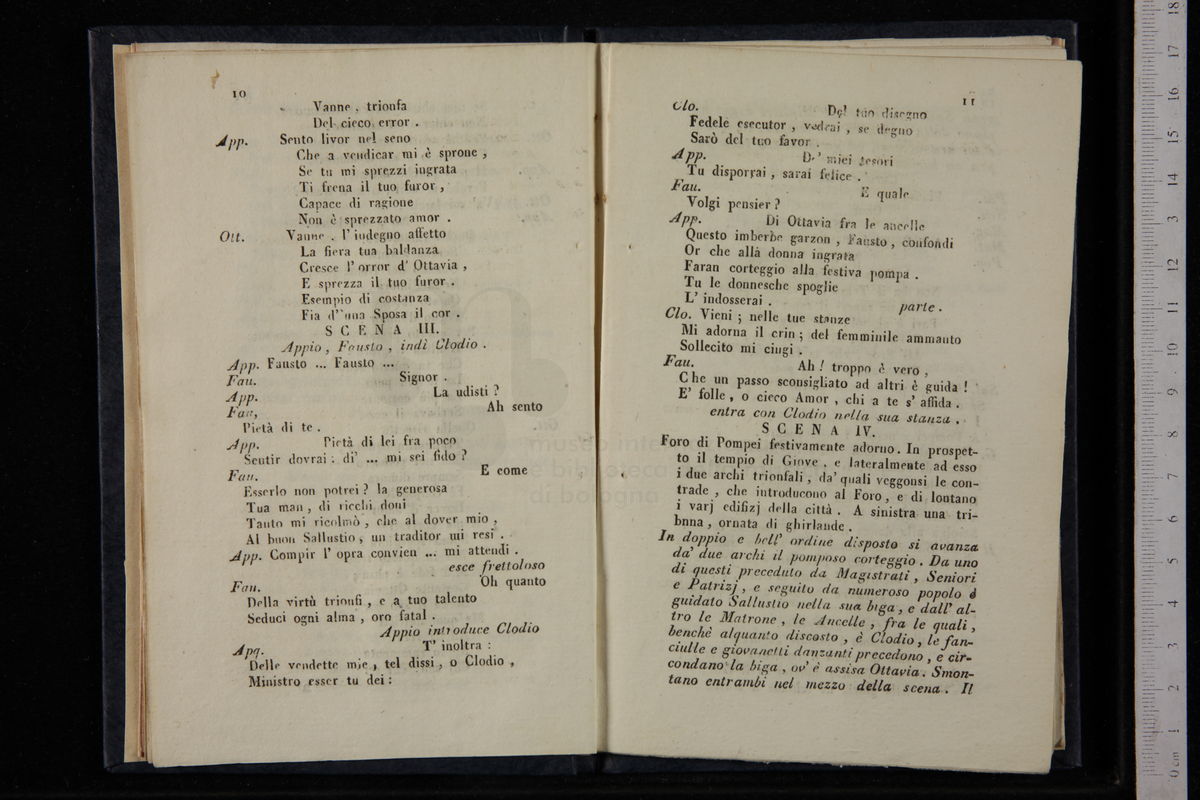 10
Vanne, trionfa
Del cieco error.
App. Sento livor nel seno
Che a vendicar mi è sprone,
Se tu mi sprezzi ingrata
Ti frena il tuo furor,
Capace di ragione
Non è sprezzato amor.
Ott. Vanne. l'indegno affetto
La fiera tua baldanza
Cresce l'orror d'Ottavia,
E sprezza il tuo furor.
Esempio di costanza
Fia d'una Sposa il cor.
SCENA III.
Appio, Fausto, indi Clodio.
App. Fausto ... Fausto ...
Fau. Signor.
App. La udisti?
Fau, Ah sento
Pietà di te.
App. Pietà di lei fra poco
Sentir dovrai: di' ... mi sei fido?
Fau. E come
Esserlo non potrei? la generosa
Tua man, di ricchi doni
Tanto mi ricolmò, che al dover mio,
Al buon Sallustio, un traditor mi resi.
App. Compir l'opra convien ... mi attendi.
esce frettoloso
Fau. Oh quanto
Della virtù trionfi, e a tuo talento
Seduci ogni alma, oro fatal.
Appio introduce Clodio
App. T'inoltra:
Delle vendette mie, tel dissi, o Clodio,
Ministro esser tu dei:
11
Clo. Del tuo disegno
Fedele esecutor, vedrai, se degno
Sarò del tuo favor.
App. De' miei tesori
Tu disporrai, sarai felice.
Fau. E quale
Volgi pensier?
App. Di Ottavia fra le ancelle
Questo imberbe garzon, Fausto, confondi
Or che allà donna ingrata
Faran corteggio alla festiva pompa.
Tu le donnesche spoglie
L'indosserai. parte.
Clo. Vieni; nelle tue stanze
Mi adorna il crin; del femminile ammanto
Sollecito mi cingi.
Fau. Ah! troppo è vero,
Che un passo sconsigliato ad altri è guida!
E' folle, o cieco Amor, chi a te s'affida.
entra con Clodio nella sua stanza.
SCENA IV.
Foro di Pompei festivamente adorno. In prospet-
to il tempio di Giove. e lateralmente ad esso
i due archi trionfali, da' quali veggonsi le con-
trade, che introducono al Foro, e di lontano
i varj edifizj della città. A sinistra una tri-
bnna, ornata di ghirlande.
In doppio e bell' ordine disposto si avanza
da' due archi il pomposo corteggio. Da uno
di questi preceduto da Magistrati, Seniori
e Patrizj, e seguito da numeroso popolo è
guidato Sallustio nella sua biga, e dall' al-
tro le Matrone, le Ancelle, fra le quali,
benchè alquanto discosto, è Clodio, le fan-
ciulle e giovanetti danzanti precedono, e cir-
condano la biga, ov' è assisa Ottavia. Smon-
tano entrambi nel mezzo della scena. Il
museo inte
e biblioteca
di bologna
0 cm 1 2 3 4 5 6 7 8 9 10 11 12 13 14 15 16 17 18